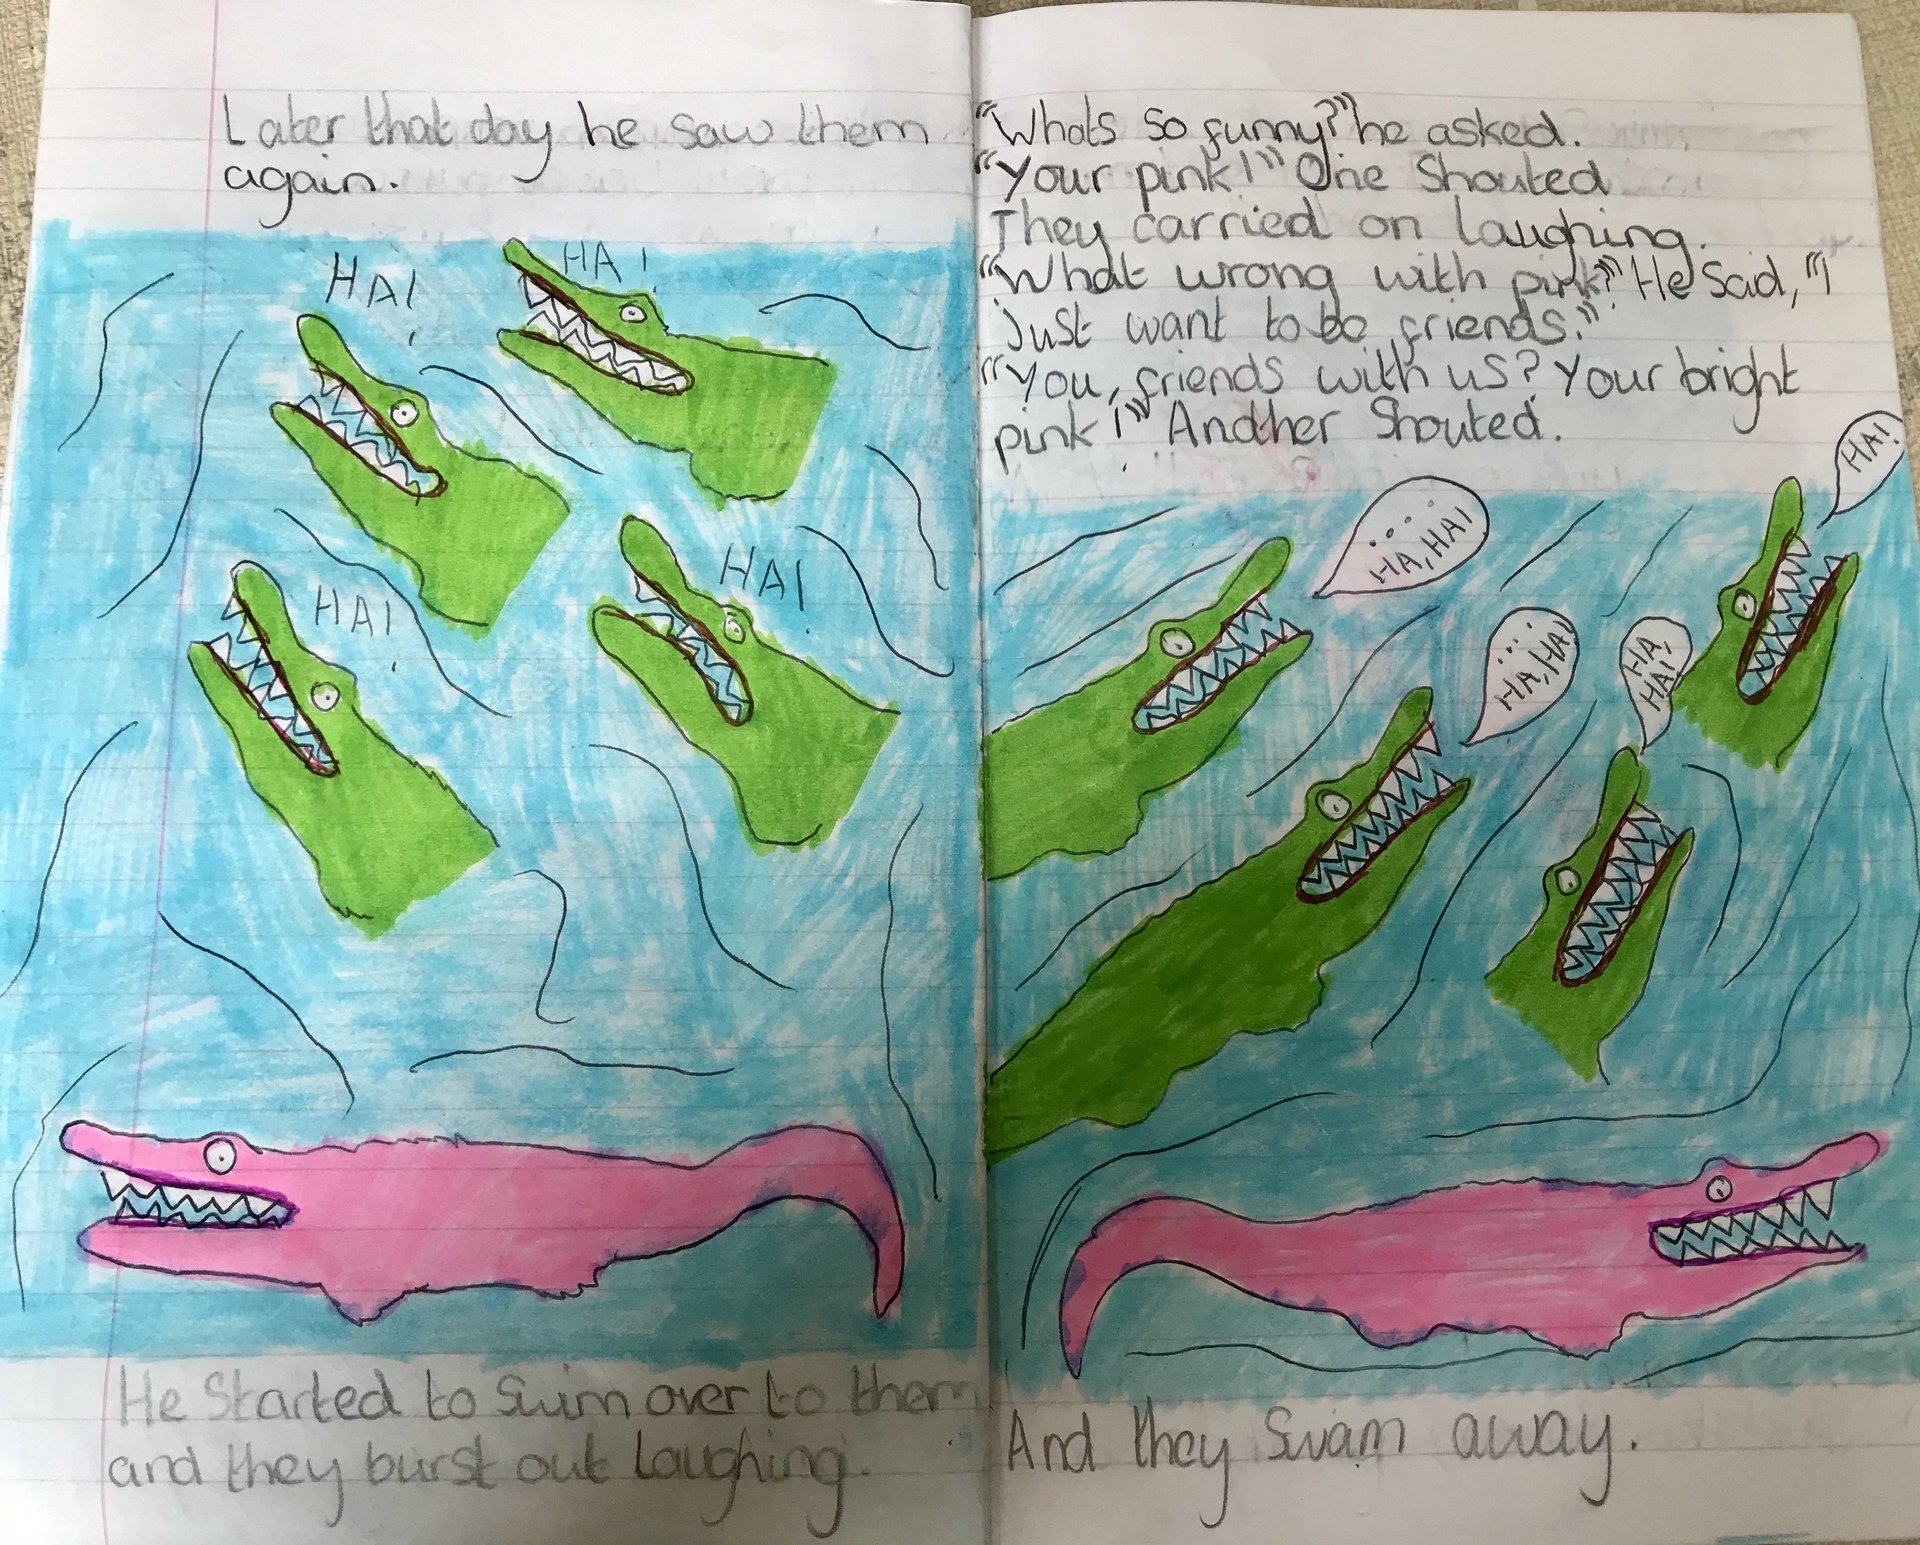 Later that day he saw them
again.
HA!
HA!
HA!
HA!
He Started to Swim over to them
and they burst out laughing.
"Whats so funny?" he asked.
"Your pink!" One Shouted
They carried on laughing.
"What wrong with pink?" He Said, "I
Just want to be friends."
"You, friends with us? Your bright
pink!" Another Shouted.
HA!
....
HA, HA!
....
HA, HA!
HA,
HA!
And they Swam away.